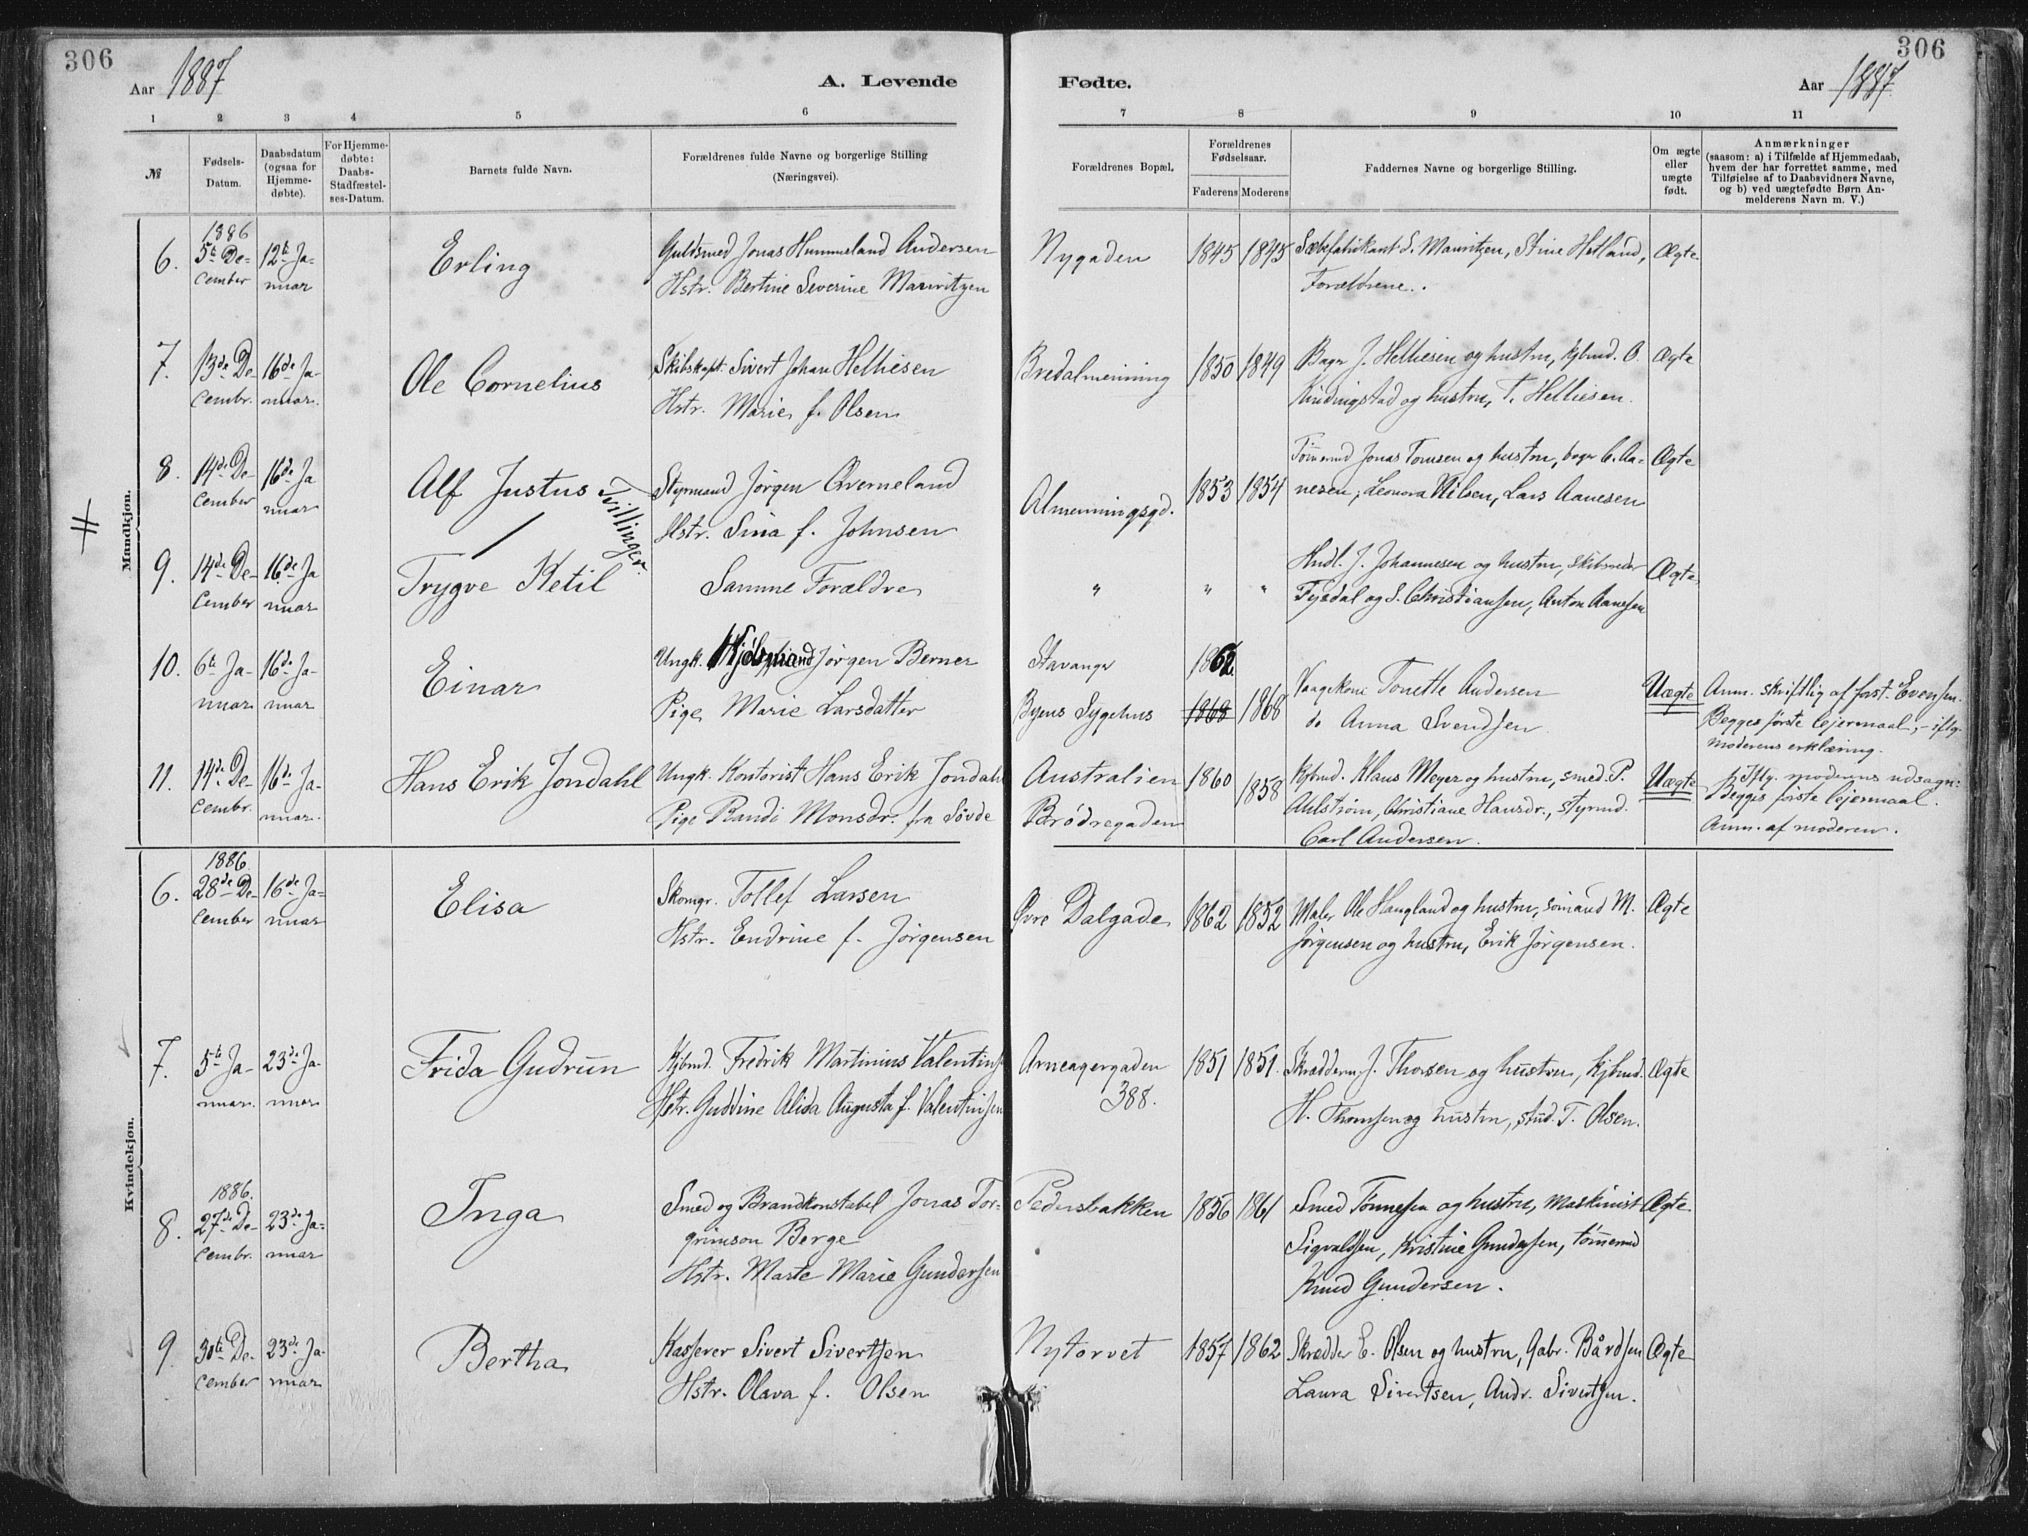 306
Aar 1887
A. Levende
1 2 3 4 5 6
№
Fødsels-
Datum.
Daabsdatum
(ogsaa for
Hjemme-
døbte).
For Hjemme-
døbte:
Daabs-
Stadfæstel-
ses-Datum.
Barnets fulde Navn.
Forældrenes fulde Navne og borgerlige Stilling
(Næringsvei).
Mandkjøn.
1886
6. 5te De- 12te Ja- Erling Guldsmed Jonas Hummeland Andersen
cember nuar Hstr. Bertine Severine Mauritzen
7. 13de De- 16de Ja- Ole Cornelius Skibskapt. Sivert Johan Helliesen
cembr. nuar. Hstr. Marie f. Olsen
8. 14de De- 16de Ja Alf Justus Styrmand Jørgen Qverneland
cember nuar Hstr. Sina f. Johnsen
Tvillinger.
9. 14de De- 16de Ja Trygve Ketil Samme Forældre
cember nuar
10. 6te Ja- 16de Ja- Einar Ungk. Jørgen Berner
nuar nuar Pige Marie Larsdatter
11. 14de De- 16de Ja- Hans Erik Jondahl Ungk. Kontorist Hans Erik Jondahl
cembr. nuar. Pige Randi Monsdr. fra Søvde
Kvindekjøn.
1886
6. 28de De- 16de Ja- Elisa Skomgr. Tollef Larsen
cember nuar Hstr. Endrine f. Jørgensen
7. 5te Ja- 23de Ja- Frida Gudrun Kjbmd. Fredrik Martinius Valentins
nuar. nuar Hstr. Guddine Alida Augusta f. Valentinsen
1886.
8. 27de De- 23de Ja- Inga Smed og Brandkonstabel Jonas Tor-
cembr. nuar grimson Berge
Hstr. Marte Marie Gundersen
9. 30te De- 23de Ja- Bertha Kasserer Sivert Sivertsen
cember nuar Hstr. Olava f. Olsen
306
Fødte.
Aar 1887
7 8 9 10 11
Forældrenes Bopæl.
Forældrenes
Fødselsaar.
Faderens Moderens
Faddernes Navne og borgerlige Stilling.
Om ægte
eller
uægte
født.
Anmærkninger
(saasom: a) i Tilfælde af Hjemmedaab,
hvem der har forrettet samme, med
Tilføielse af to Daabsvidners Navne,
og b) ved uægtefødte Børn An-
melderens Navn m. V.)
Nygaden 1845 1845 Sæbefabrikant S. Mauritzen, Stine Hetland, Ægte
Forældrene.
Bredalmenning 1850 1849 Bager J. Helliesen og hustru, kjbmd. O. Ægte
Kindingstad og hustru, T. Helliesen.
Almenningsgd. 1853 1854 Tømmermd Jonas Tomsen og hustru, bager C. Aa- Ægte
nesen, Leonora Nilsen, Lars Aanesen
" " " Hndl. J. Johannesen og hustru, skibsreder Ægte
Tysdal og S. Christiansen, Anton Aanesen
Stavanger 1862
Byens Sygehus 1868 1868 Vaagekone Tonette Andersen Uægte Anm. skriftlig af forst. Evensen.
do Anna Svendsen Begges første lejermaal, - iflg.
moderens erklæring.
Australien 1860 1858 Kjbmd. Klaus Meyer og hustru, smed P. Uægte Iflg. moderens udsagn:
Brødregaden Ahlstrøm, Christiane Hansdr., styrmd. Begges første lejermaal.
Carl Andersen. Anm. af moderen.
Øvre Dalgade 1862 1852 Maler Ole Haugland og hustru, sømand M. Ægte
Jørgensen og hustru, Erik Jørgensen.
Arneagergaden 1851 1851. Skrædderm. J. Thorsen og hustru, kjbmd. Ægte
388. H. Thomsen og hustru, stud. T. Olsen.
Pedersbakken 1856 1861 Smed Tønnesen og hustru, maskinist Ægte
Sigvaldsen, Kristine Gundersen, tømmermd
Knud Gundersen.
Nytorvet 1857 1862 Skrædder E. Olsen og hustru, Gabr. Bårdsen Ægte
Laura Sivertsen, Andr. Sivertsen.